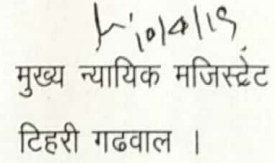 10/4/19
मुख्य न्यायिक मजिस्ट्रेट
टिहरी गढवाल ।